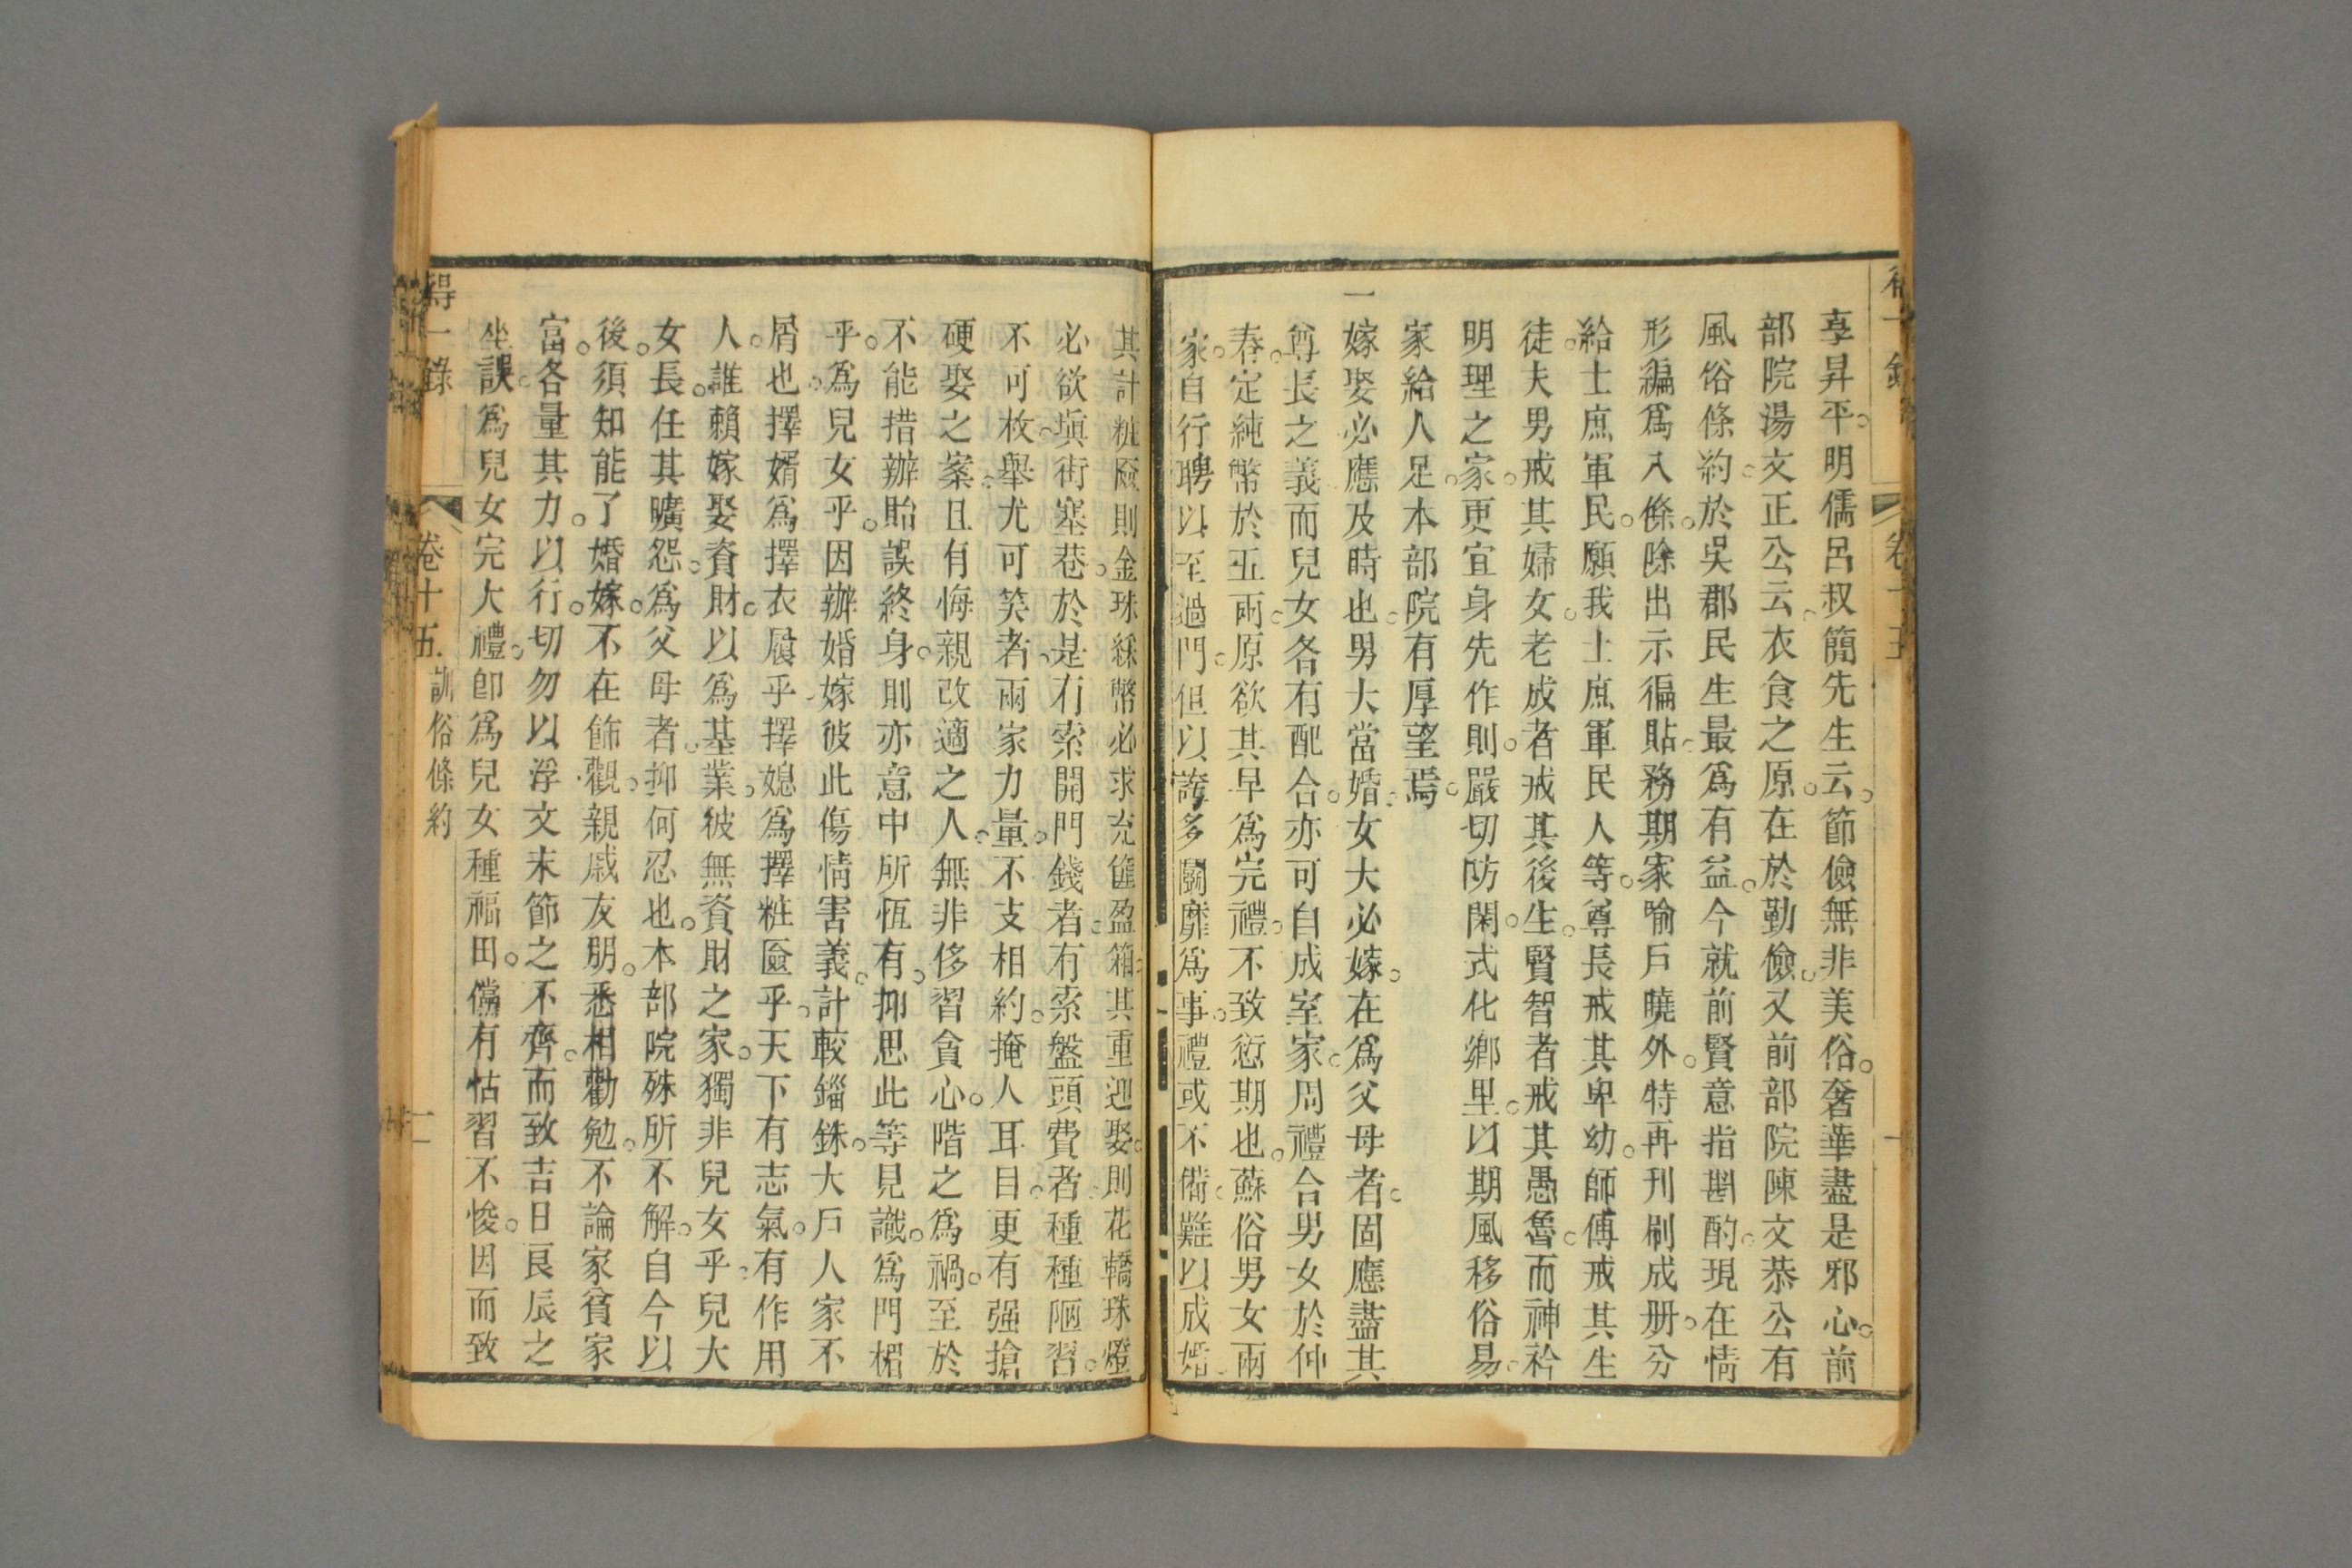 享昇平。明儒呂叔簡先生云。節儉無非美俗。奢華盡是邪心。前
部院湯文正公云。衣食之原。在於勤儉。又前部院陳文恭公有
風俗條約。於吳郡民生最爲有益。今就前賢意指斟酌。現在情
形編爲八條。除出示徧貼。務期家喻戶曉外。特再刊刷成册。分
給士庶軍民。願我士庶軍民人等。尊長戒其卑幼。師傅戒其生
徒。夫男戒其婦女。老成者戒其後生。賢智者戒其愚魯。而神衿
明理之家。更宜身先作則。嚴切防閑。式化鄉里。以期風移俗易。
家給人足。本部院有厚望焉。
一嫁娶必應及時也。男大當婚。女大必嫁。在爲父母者。固應盡其
尊長之義而兒女各有配合。亦可自成室家。周禮合男女於仲
春。定純幣於五兩。原欲其早爲完禮。不致愆期也。蘇俗男女兩
家。自行聘以至過門。但以誇多鬭靡爲事。禮或不備。難以成婚。
其計粧匳則金珠綵幣必求充篚盈箱。其重迎娶。則花轎珠燈
必欲塡街塞巷。於是有索開門錢者。有索盤頭費者。種種陋習。
不可枚舉。尤可笑者。兩家力量。不支相約。掩人耳目。更有强搶
硬娶之案。且有悔親改適之人。無非侈習貪心。階之爲禍。至於
不能措辦。貽誤終身。則亦意中所恆有。抑思此等見識。爲門楣
乎。爲兒女乎。因辦婚嫁彼此傷情害義。計較錙銖。大戶人家不
屑也。擇婿爲擇衣屨乎。擇媳爲擇粧匳乎。天下有志氣。有作用
人。誰賴嫁娶資財。以爲基業。彼無資財之家。獨非兒女乎。兒大
女長。任其曠怨。爲父母者。抑何忍也。本部院殊所不解。自今以
後。須知能了婚嫁。不在飾觀。親戚友朋。悉相勸勉。不論家貧家
富。各量其力。以行。切勿以浮文末節之不齊。而致吉日良辰之
坐誤。爲兒女完大禮。卽爲兒女種福田。儻有怙習不悛。因而致
得一錄 卷十五 訓俗條約 二